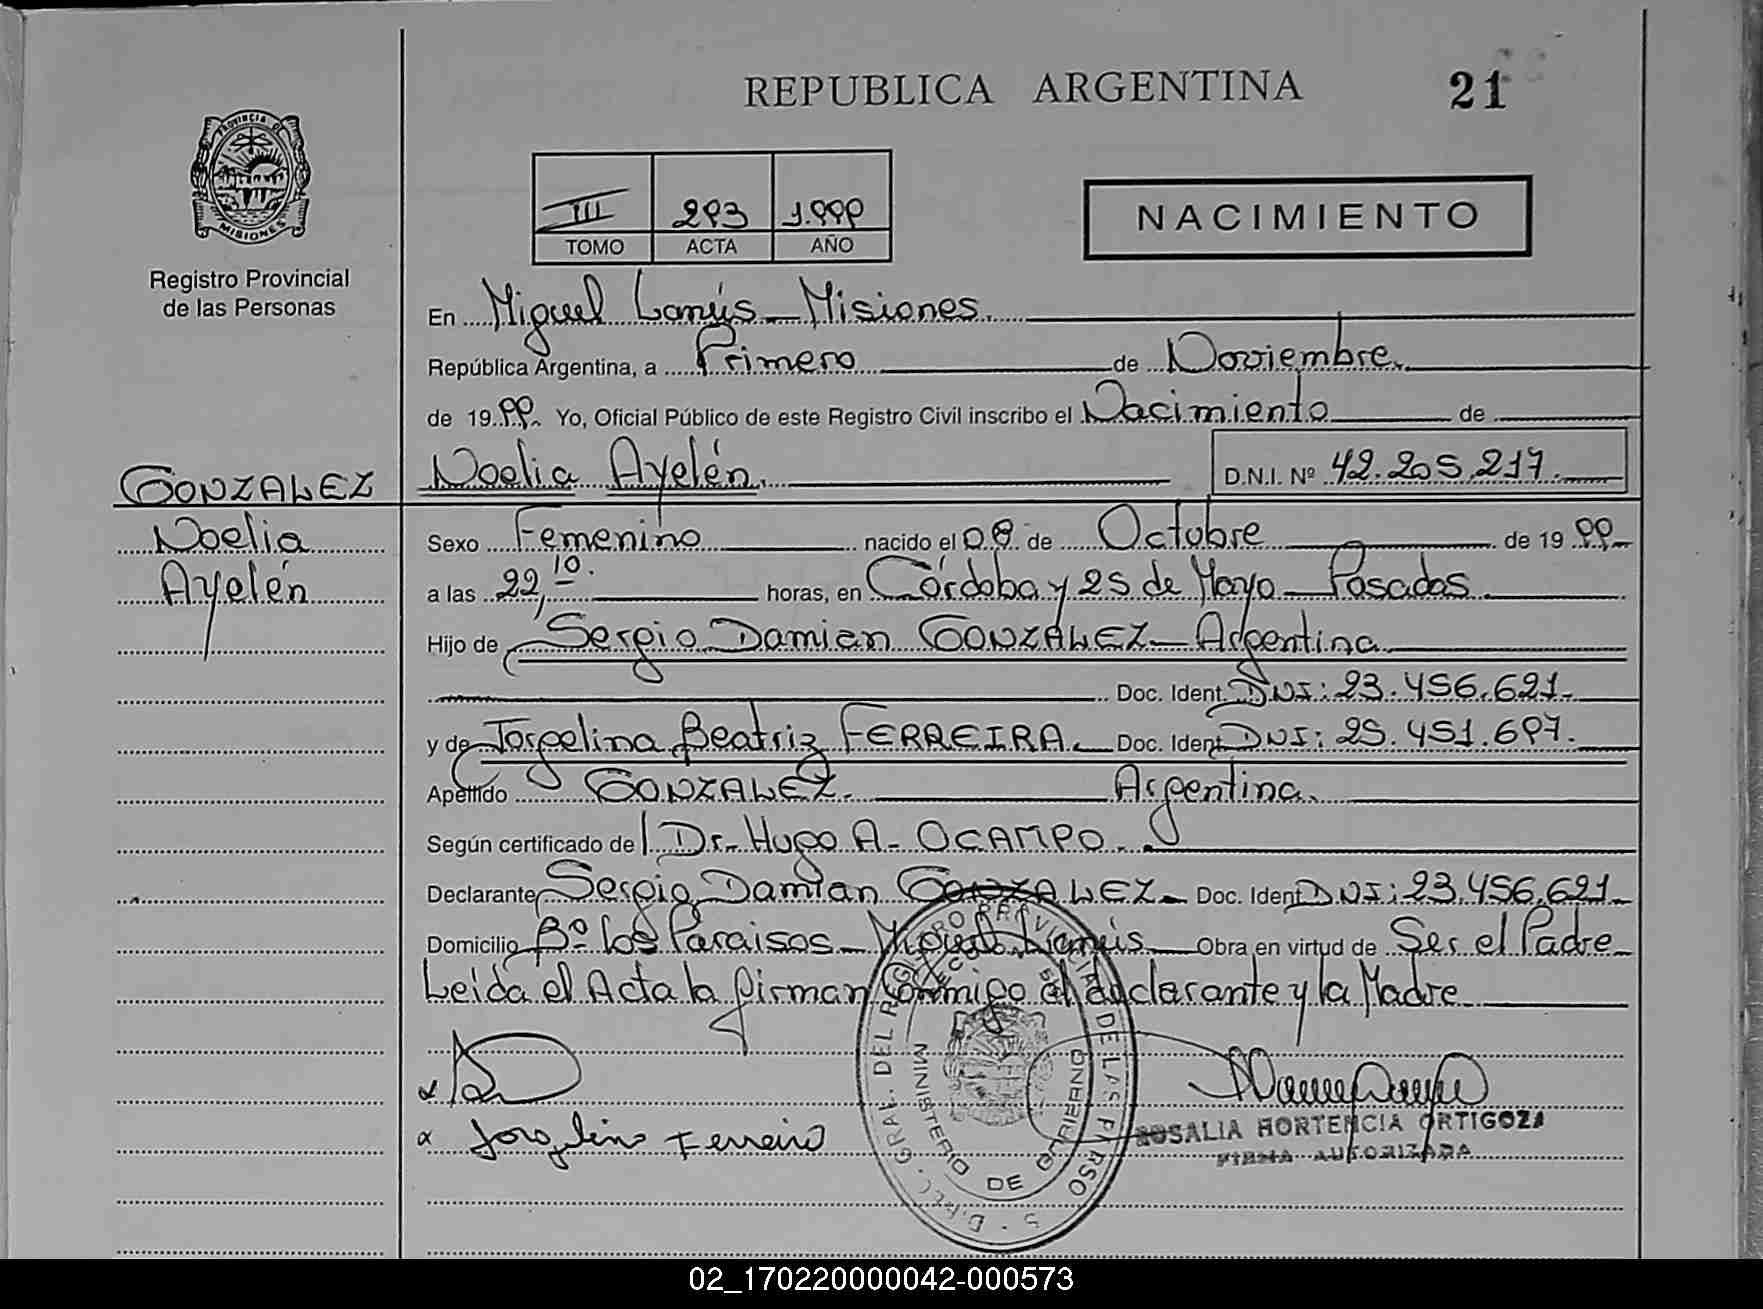 REPUBLICA ARGENTINA
21
PROVINCIA DE
MISIONES
Registro Provincial
de las Personas
III 293 1.999
TOMO ACTA AÑO
NACIMIENTO
En Miguel Lanús - Misiones.
República Argentina, a Primero de Noviembre.
de 19 99. Yo, Oficial Público de este Registro Civil inscribo el Nacimiento de
GONZALEZ
Noelia
Ayelén
Noelia Ayelén. D.N.I. Nº 42.205.217.
Sexo Femenino nacido el 09 de Octubre de 19 99
a las 22,10. horas, en Córdoba y 25 de Mayo - Posadas
Hijo de Sergio Damian GONZALEZ - Argentina
Doc. Ident. DNI: 23.456.621.
y de Jorgelina Beatriz FERREIRA. Doc. Ident. DNI: 25.451.697.
Apellido GONZALEZ. Argentina.
Según certificado de Dr. Hugo A. OCAMPO.
Declarante Sergio Damian GONZALEZ - Doc. Ident. DNI: 23.456.621.
Domicilio Bº los Paraisos - Miguel Lanús - Obra en virtud de Ser el Padre
Leida el Acta la firman conmigo el declarante y la Madre
Jorgelina Ferreira
ROSALIA HORTENCIA ORTIGOZA
FIRMA AUTORIZADA
GRAL. DEL REGISTRO PROVINCIAL DE LAS PERSO
MINISTERIO DE GOBIERNO
02_170220000042-000573